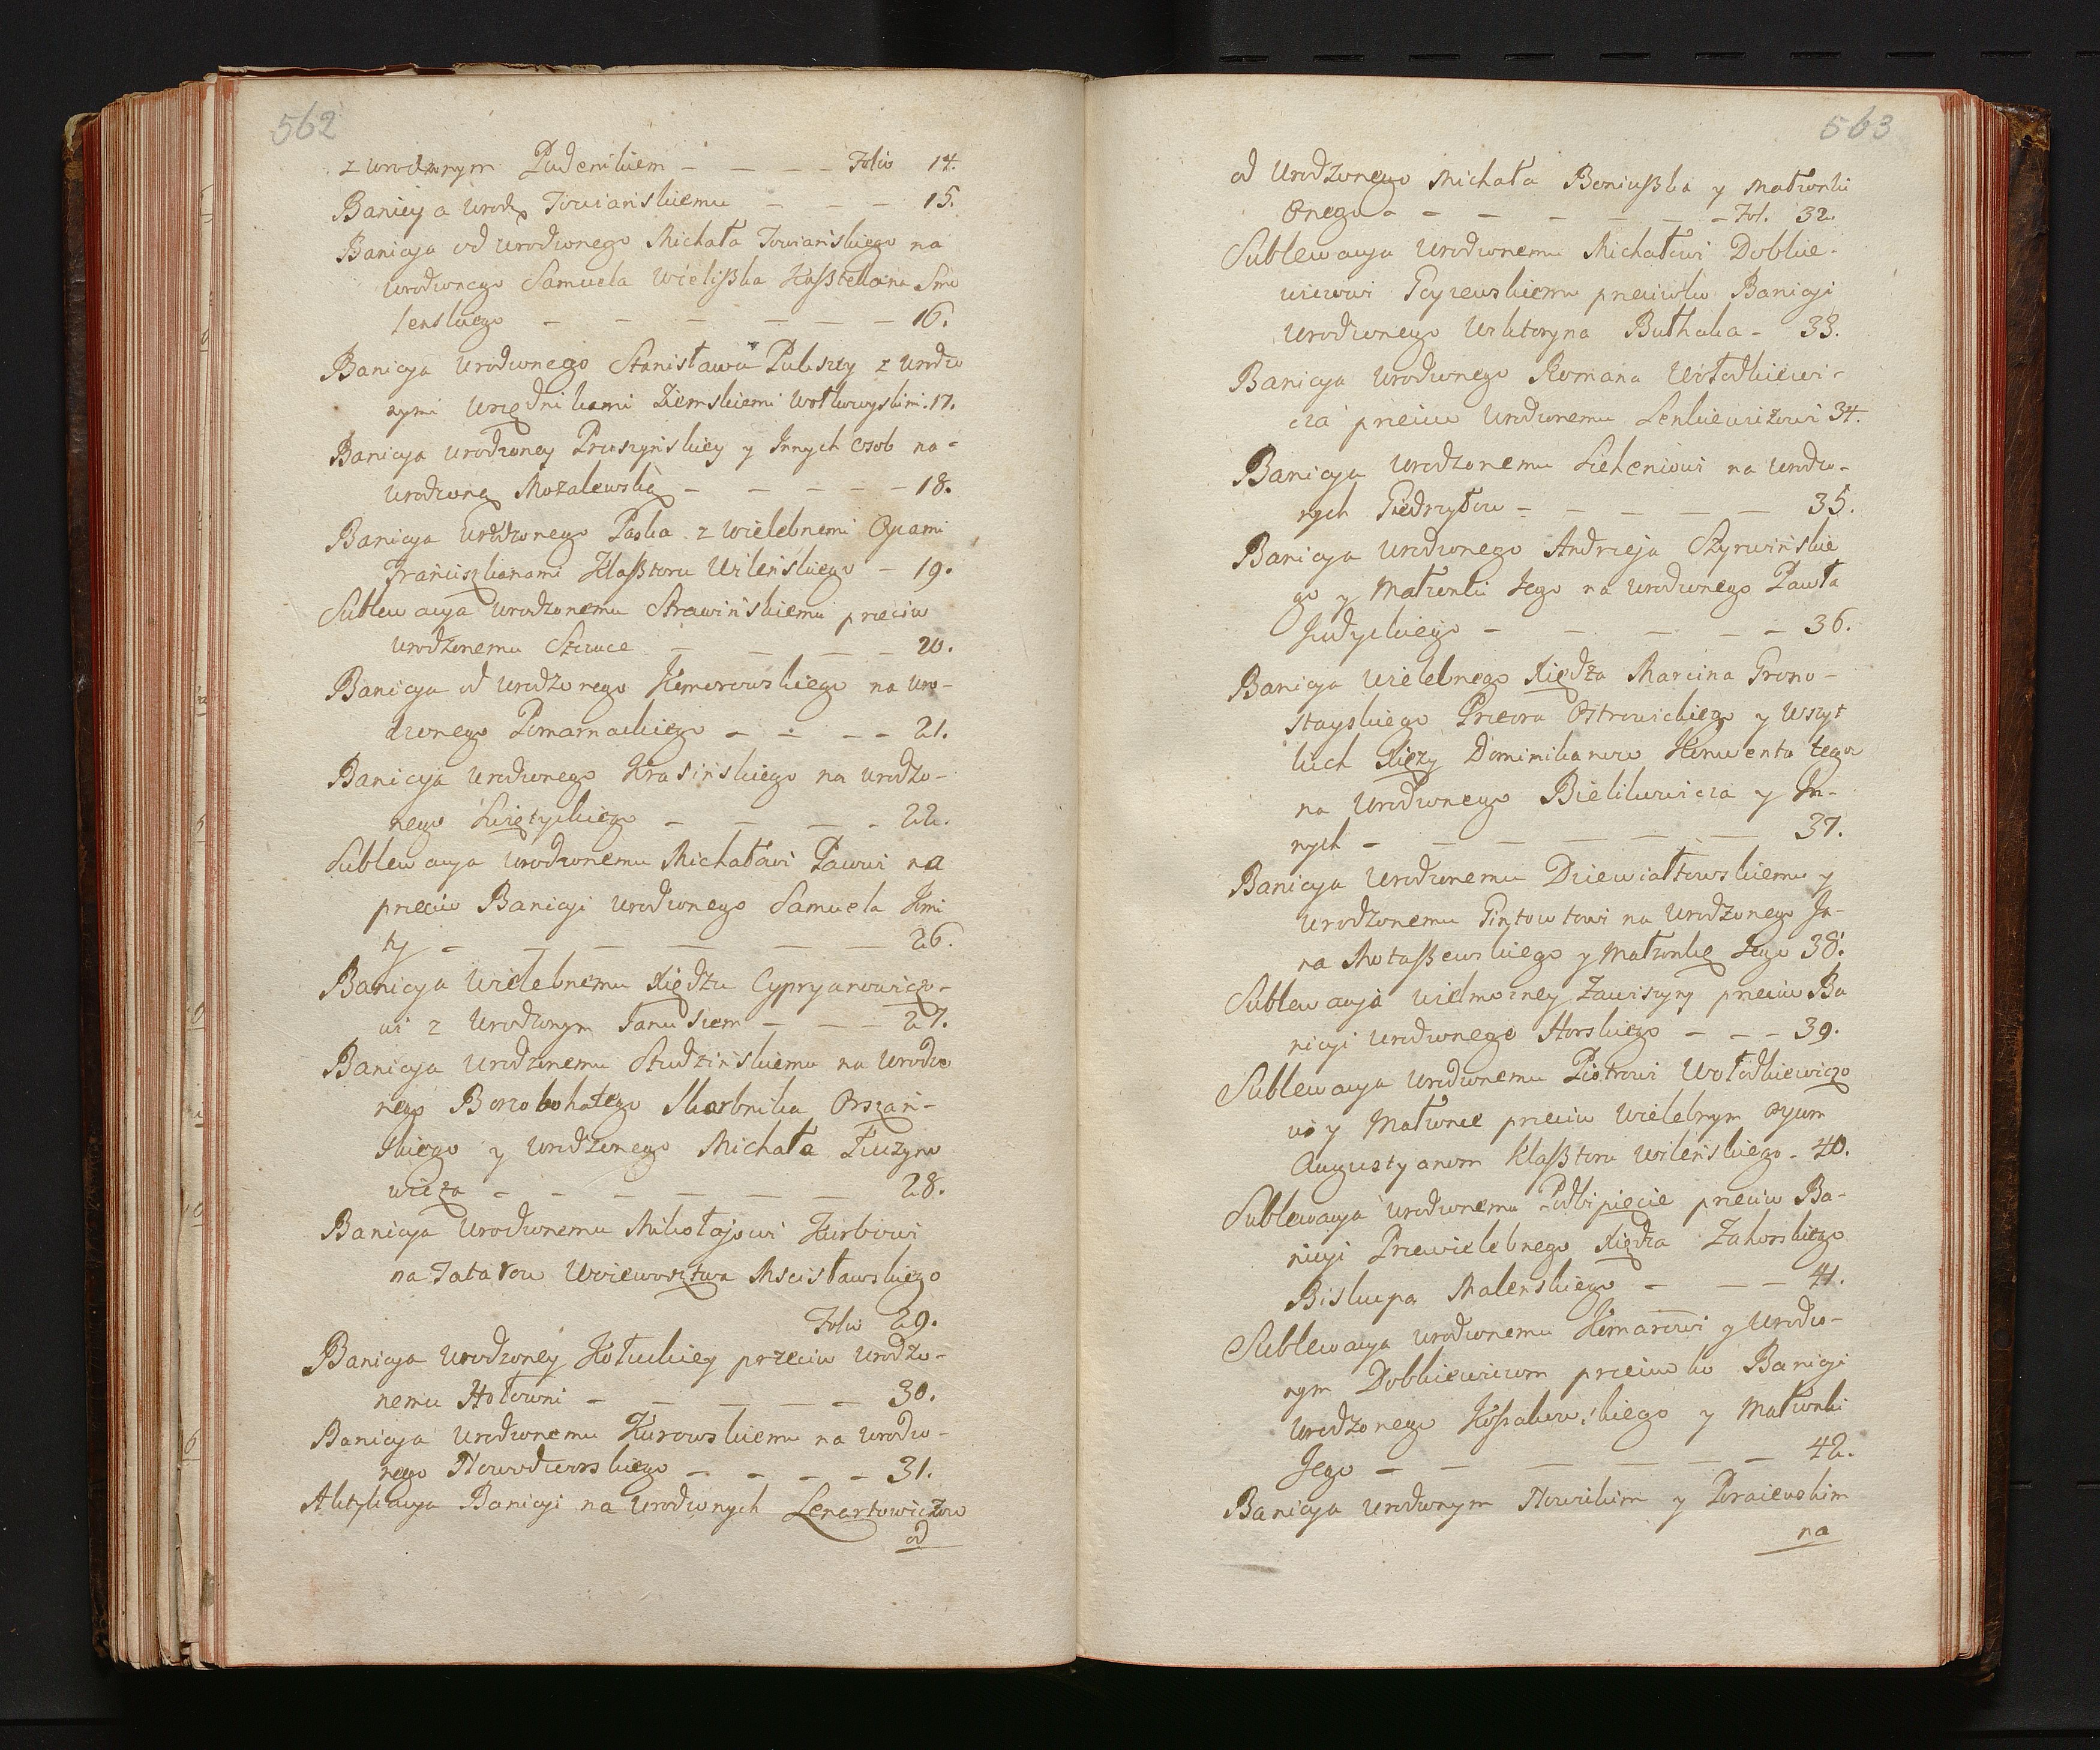 562
z urodzonym Pudenikiem - - - - Folio 14.
Banicya urodz Towiańskiemu - - - 15.
Banicyja od urodzonego Michała Towiańskiego na
urodzonego Samuela Wieliszka Kasztellana Smo
lenskiego - - - - - - 16.
Banicya urodzonego Stanisława Pukszty z urodzo
nymi urzędnikami Ziemskiemi Wołkowyskimi. 17.
Banicya urodzoney Pruszyńskiey y Innych Osob na-
urodzoną Mozalewską - - - - - 18.
Banicya urodzonego Paska z Wielebnemi Oycami
Franciszkanami Klasztoru Wileńskiego - 19.
Sublewacya urodzonemu Strawińskiemu przeciw
urodzonemu Sztruce - - - - 20.
Banicya od urodzonego Komorowskiego na uro-
dzonego Pomarnackiego - - - - 21.
Banicyja urodzonego Krasińskiego na urodzo-
nego Swiętyckiego - - - - 22.
Sublewacya urodzonemu Michałowi Pawwi na
przeciw Banicyi urodzonego Samuela Kmi
ty - - - - - - 26.
Banicya Wielebnemu Xiędzu Cypryanowiczo-
wi z Urodzonym Janusiem - - - 27.
Banicya urodzonemu Studzińskiemu na urodzo
nego Borzobohatego Skarbnika Orszań-
skiego y urodzonego Michała Łuczyno
wicza - - - - - - 28.
Banicya urodzonemu Mikołajowi Kurbowi
na Tatarow Woiewodztwa Mscisławskiego
Folio 29.
Banicya urodzoney Kołuckiey przeciw urodzo-
nemu Hołowni - - - - - 30.
Banicya urodzonemu Kurowskiemu na urodzo-
nego Nowodworskiego - - - - 31.
Aktykacya Banicyi na urodzonych Lenartowiczow
od
563
od Urodzonego Michała Boniuszka y Małżonki
Onego - - - - - - - Fol. 32.
Sublewacya urodzonemu Michałowi Dobkie-
wiczowi Pcycewskiemu przeciwko Banicyi
urodzonego Wiktoryna Buthaka - 33.
Banicya urodzonego Romana Wołodkiewi-
cza przeciw urodzonemu Lenkiewiczowi 34.
Banicya urodzonemu Lieheniowi na urodzo-
nych Giedrzytow - - - - - 35.
Banicya urodzonego Andrzeja Szyrwińskie
go y Małżonki Jego na urodzonego Pawła
Judyckiego - - - - - 36.
Banicya Wielebnego Xiędza Marcina Grono-
stayskiego Przeora Ostrowickiego y Wszyt
kich Xięży Dominikanow Konwentu tegoz
na Urodzonego Bielikowicza y In-
nych - - - - - - 37.
Banicya Urodzonemu Dziewiałtowskiemu y
urodzonemu Gintowtowi na Urodzonego Ja-
na Mołaszewskiego y Małżonkę Jego 38.
Sublewacyja wielmozney Zawiszyny przeciw Ba
nicyi urodzonego Horskiego - - - 39.
Sublewacya urodzonemu Piotrowi Wołodkiewiczo
wi y Małżonce przeciw Wielebnym Oycom
Augustyanom Klasztoru Wileńskiego - 40.
Sublewacya urodzonemu Podbipięcie przeciw Ba-
nicyi Przewielebnego Xiędza Zahorskiego
Biskupa Malenskiego - - - 41.
Sublewacya urodzonemu Komarowi y Urodzo-
nym Dobkiewiczom przeciwko Banicyi
Urodzonego Kossakowskiego y Małżonki
Jego - - - - - - 42.
Banicya urodzonym Nowickim y Poraiewskim
na